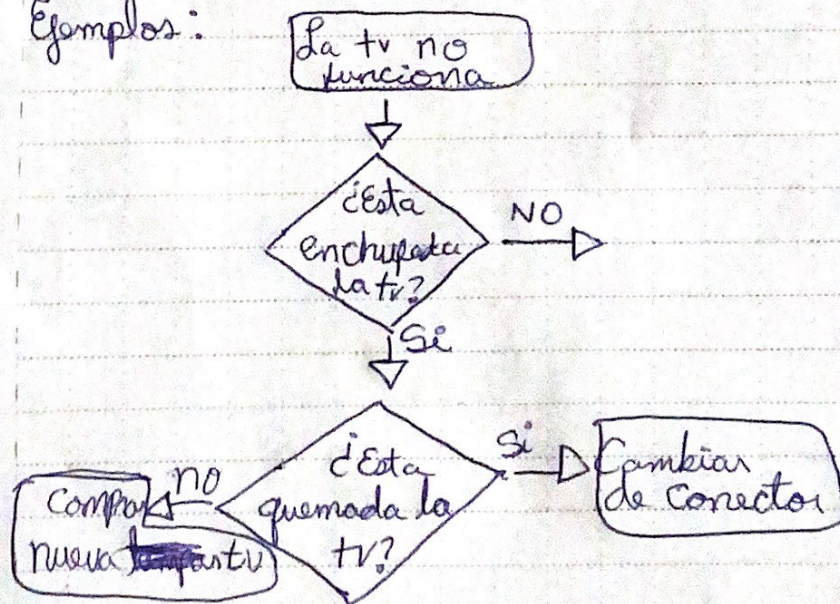 Ejemplos:
La tv no
funciona
¿Esta
enchufada
la tv?
NO
Si
¿Esta
quemada la
tv?
Si
Cambiar
de conector
no
Comprar
nueva tv